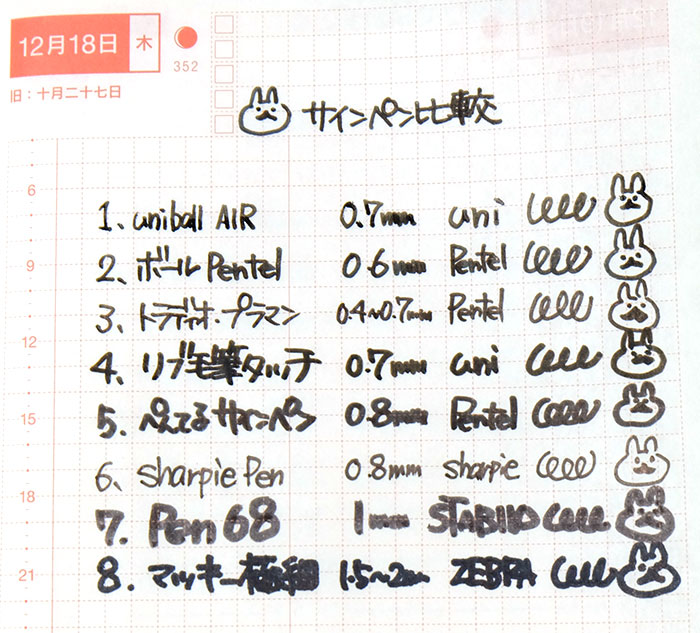 12月18日 木
352
旧：十月二十七日
サインペン比較
6
1. uniball AIR 0.7mm uni
9
2. ボール Pentel 0.6mm Pentel
3. トラディオ・プラマン 0.4~0.7mm Pentel
12
4. リブ毛筆タッチ 0.7mm uni
15
5. ぺんてるサインペン 0.8mm Pentel
6. sharpie Pen 0.8mm sharpie
18
7. Pen 68 1mm STABILO
21
8. マッキー極細 1.5~2mm ZEBRA